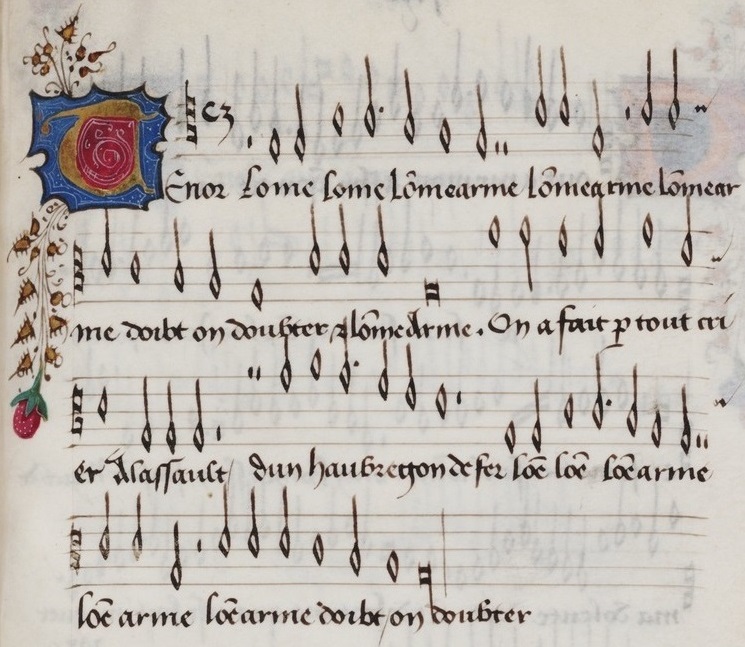 Tenor Lome lome lōmearme lōmearme lōmear
me doibt on doubter & lōmearme. On a fait ꝑ tout cri
er Alassault dun haubregon de fer lōe lōe lōearme
lōe arme lōearme doibt on doubter